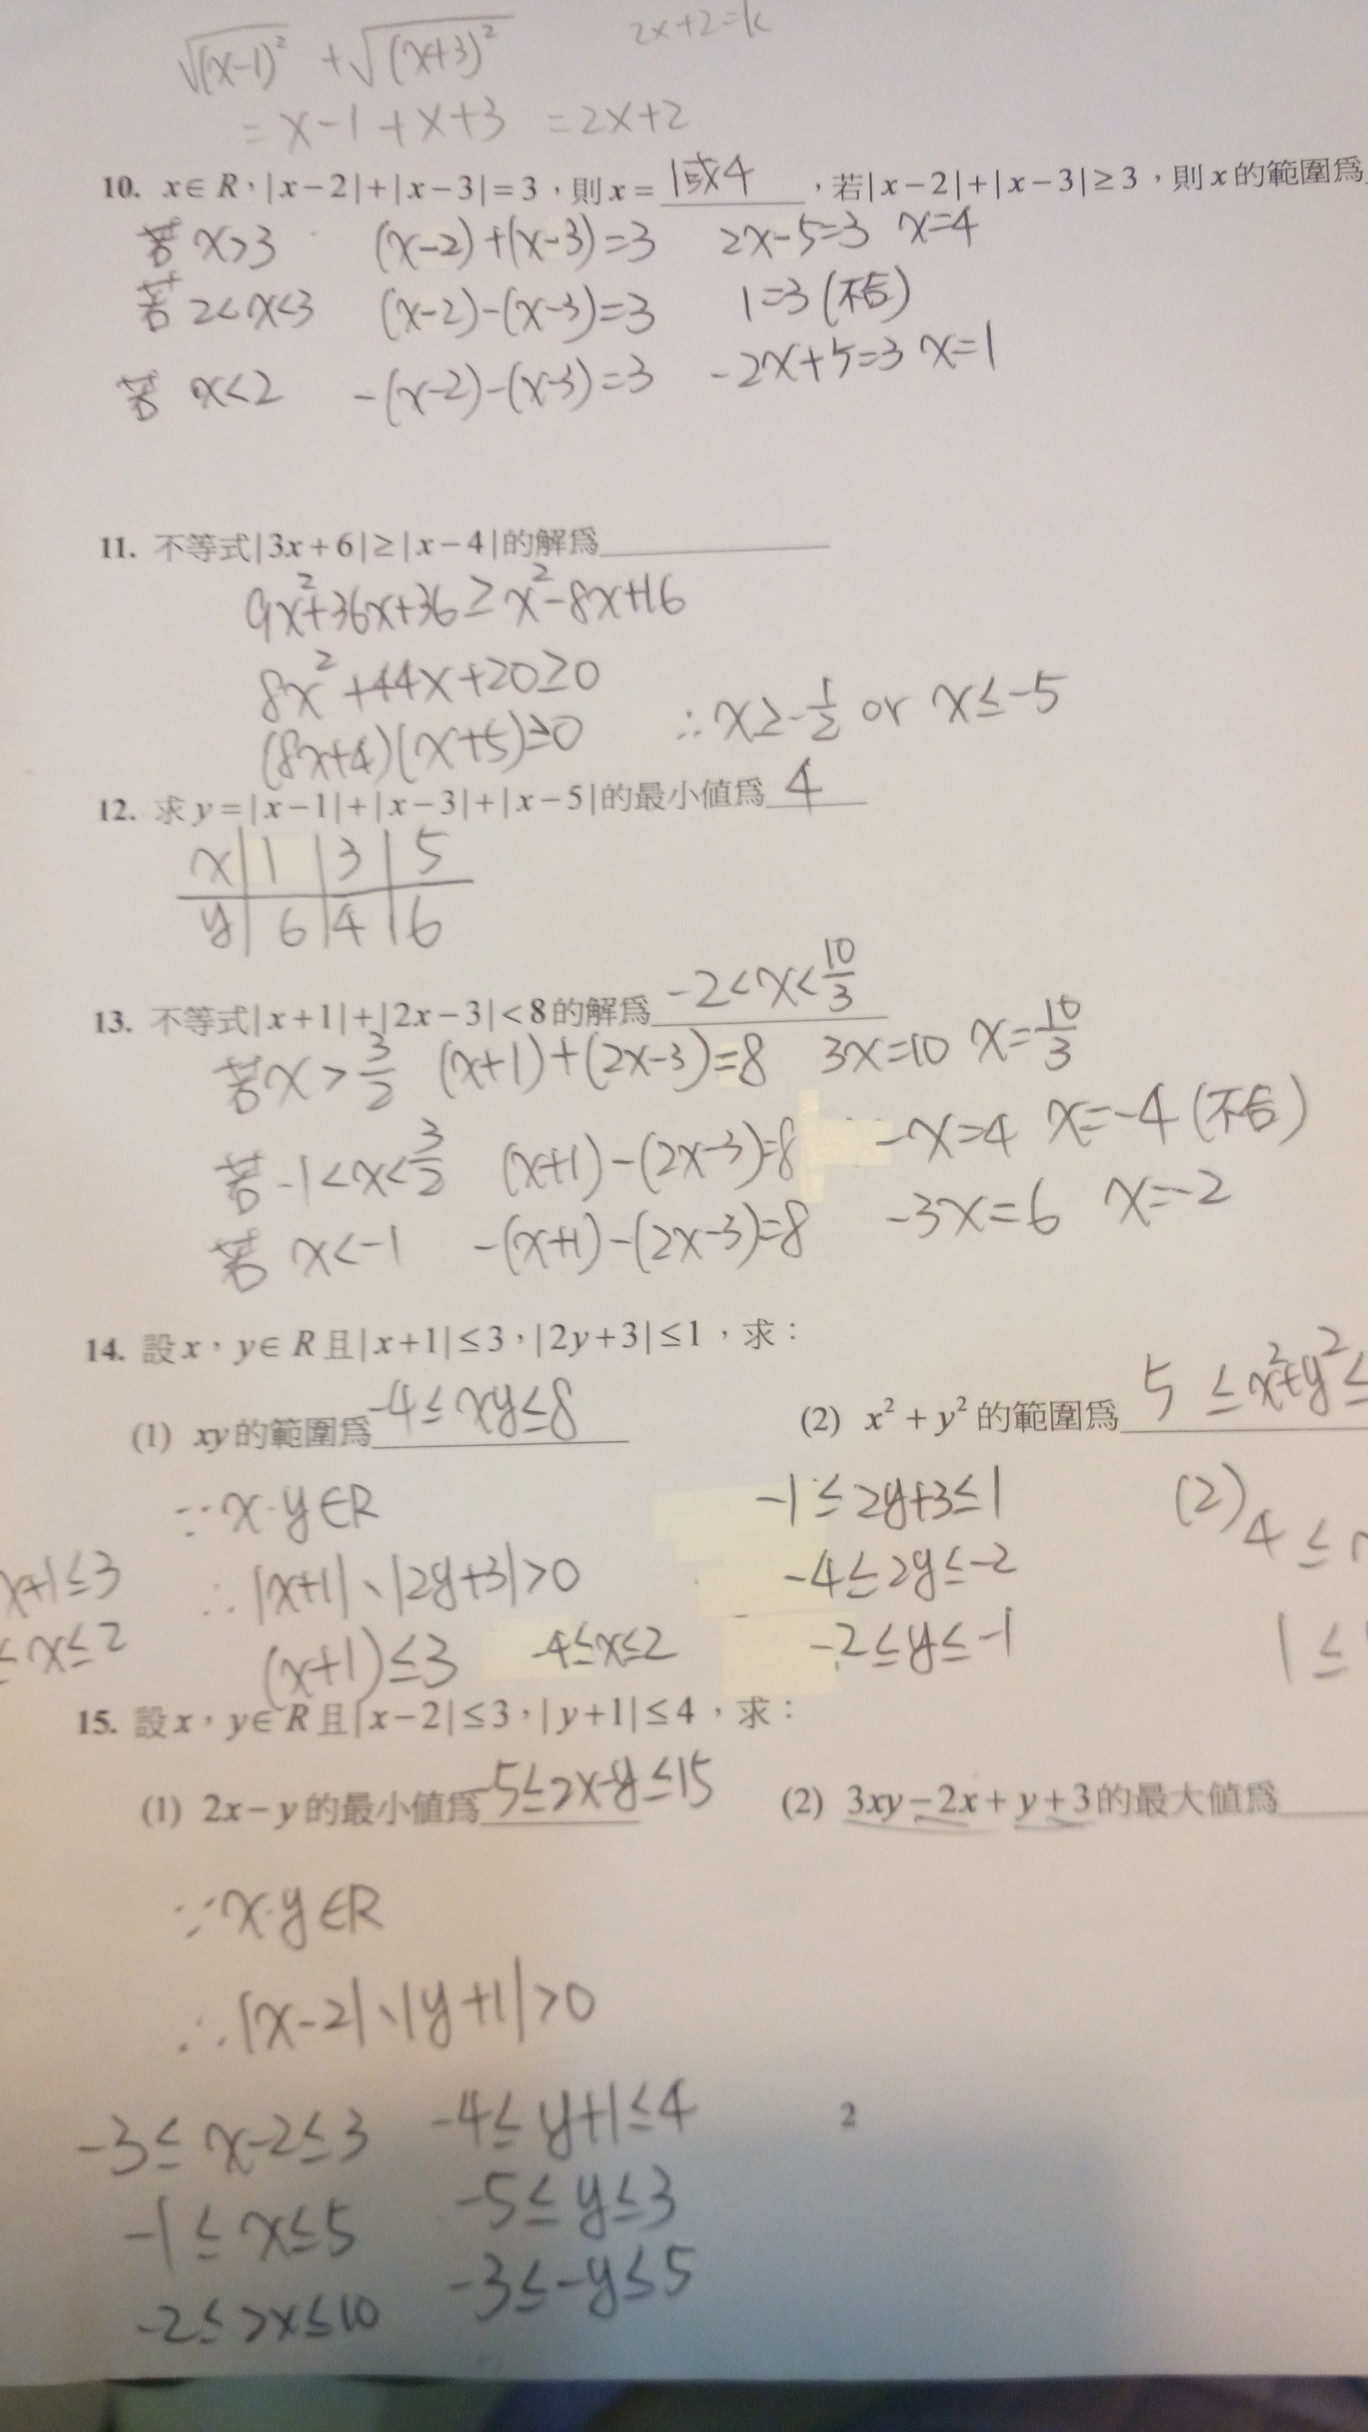 √(x-1)² + √(x+3)²    2x+2=k
= x-1+x+3 = 2x+2
10. x∈R，|x-2|+|x-3|=3，則x= 1或4 ，若|x-2|+|x-3|≥3，則x的範圍爲
若 x>3 (x-2)+(x-3)=3 2x-5=3 x=4
若 2<x<3 (x-2)-(x-3)=3 1=3(不合)
若 x<2 -(x-2)-(x-3)=3 -2x+5=3 x=1
11. 不等式|3x+6|≥|x-4|的解爲
9x²+36x+36≥x²-8x+16
8x²+44x+20≥0
(8x+4)(x+5)≥0 ∴x≥-1/2 or x≤-5
12. 求y=|x-1|+|x-3|+|x-5|的最小值爲 4
x 1 3 5
y 6 4 6
13. 不等式|x+1|+|2x-3|<8的解爲 -2<x<10/3
若x>3/2 (x+1)+(2x-3)=8 3x=10 x=10/3
若-1<x<3/2 (x+1)-(2x-3)=8 -x=4 x=-4(不合)
若 x<-1 -(x+1)-(2x-3)=8 -3x=6 x=-2
14. 設x，y∈R且|x+1|≤3，|2y+3|≤1，求：
(1) xy的範圍爲 -4≤xy≤8 (2) x²+y²的範圍爲 5≤x²+y²≤
∵x.y∈R -1≤2y+3≤1 (2) 4≤
x+1≤3 ∴|x+1|、|2y+3|>0 -4≤2y≤-2
≤x≤2 (x+1)≤3 -4≤x≤2 -2≤y≤-1 1≤
15. 設x，y∈R且|x-2|≤3，|y+1|≤4，求：
(1) 2x-y的最小值爲 -5≤2x-y≤15 (2) 3xy-2x+y+3的最大值爲
∵x.y∈R
∴|x-2|、|y+1|>0
-3≤x-2≤3 -4≤y+1≤4
-1≤x≤5 -5≤y≤3
-2≤2x≤10 -3≤-y≤5
2